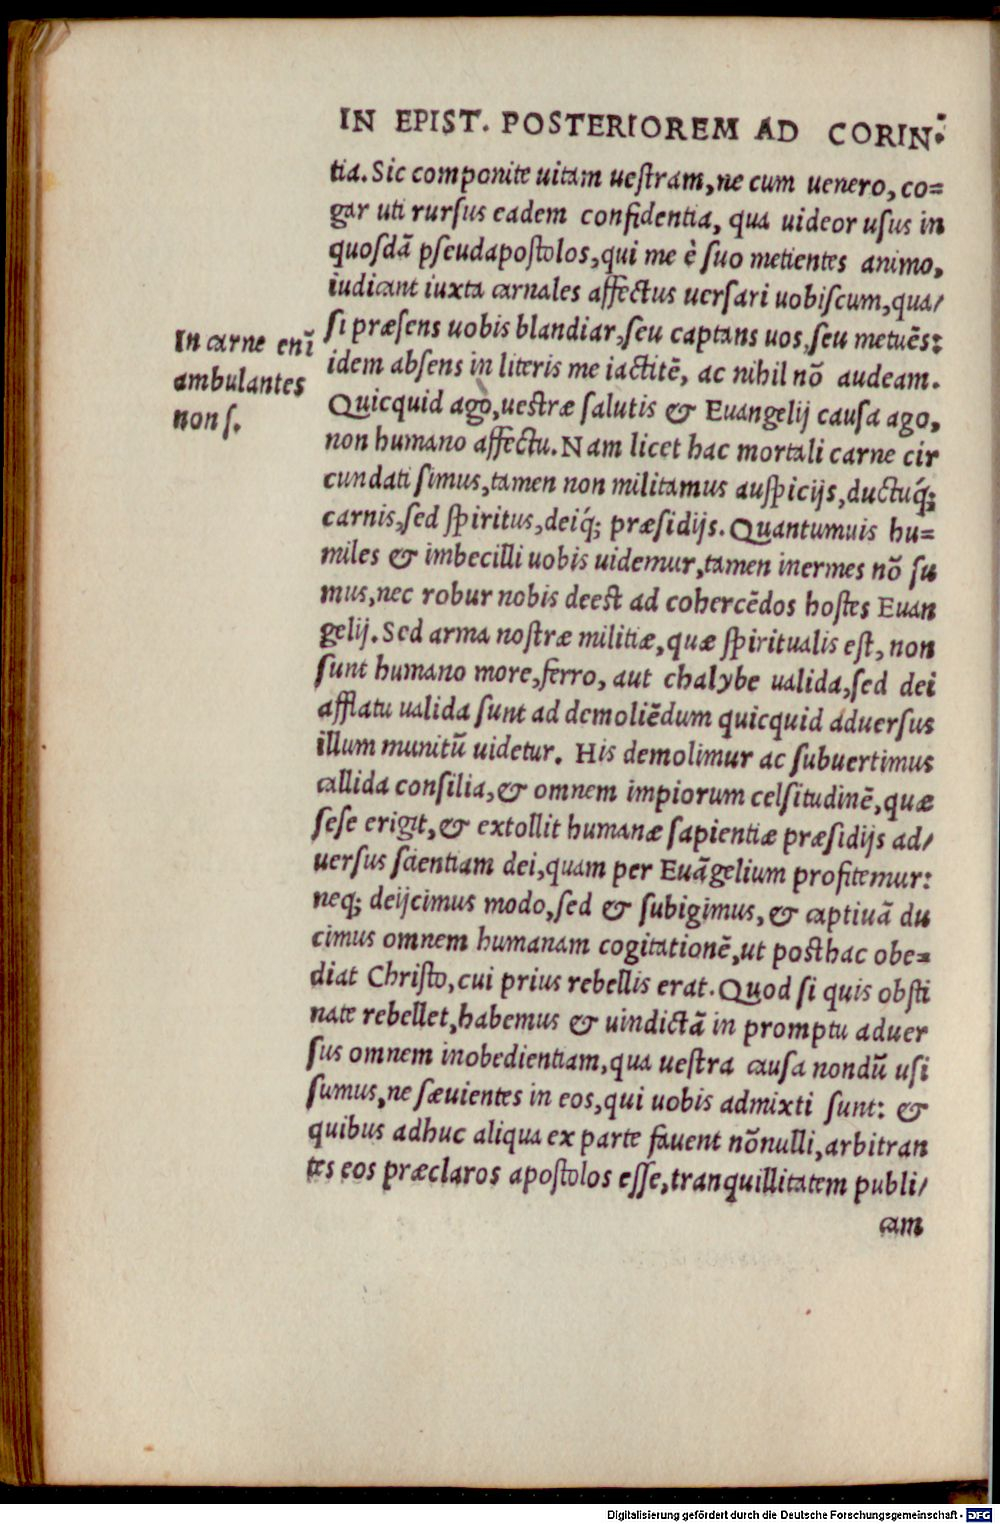 IN EPIST. POSTERIOREM AD CORIN:
tia. Sic componite uitam ueſtram, ne cum uenero, co=
gar uti rurſus eadem confidentia, qua uideor uſus in
quoſdã pſeudapoſtolos, qui me è ſuo metientes animo,
iudicant iuxta carnales affectus uerſari uobiſcum, qua/
ſi præſens uobis blandiar, ſeu captans uos, ſeu metuẽs:
idem abſens in literis me iactitẽ, ac nihil nõ audeam.
Quicquid ago, ueſtræ ſalutis & Euangelij cauſa ago,
non humano affectu. Nam licet hac mortali carne cir
cundati ſimus, tamen non militamus auſpicijs, ductuq́;
carnis, ſed ſpiritus, deiq́; præſidijs. Quantumuis hu=
miles & imbecilli uobis uidemur, tamen inermes nõ ſu
mus, nec robur nobis deeſt ad cohercẽdos hoſtes Euan
gelij. Sed arma noſtræ militiæ, quæ ſpiritualis eſt, non
ſunt humano more, ferro, aut chalybe ualida, ſed dei
afflatu ualida ſunt ad demoliẽdum quicquid aduerſus
illum munitũ uidetur. His demolimur ac ſubuertimus
callida conſilia, & omnem impiorum celſitudinẽ, quæ
ſeſe erigit, & extollit humanæ ſapientiæ præſidijs ad/
uerſus ſcientiam dei, quam per Euãgelium profitemur:
neq; deijcimus modo, ſed & ſubigimus, & captiuã du
cimus omnem humanam cogitationẽ, ut poſthac obe=
diat Chriſto, cui prius rebellis erat. Quod ſi quis obſti
nate rebellet, habemus & uindictã in promptu aduer
ſus omnem inobedientiam, qua ueſtra cauſa nondũ uſi
ſumus, ne ſæuientes in eos, qui uobis admixti ſunt: &
quibus adhuc aliqua ex parte fauent nõnulli, arbitran
tes eos præclaros apoſtolos eſſe, tranquillitatem publi/
cam
In carne enĩ
ambulantes
non ſ.
Digitalisierung gefördert durch die Deutsche Forschungsgemeinschaft - DFG